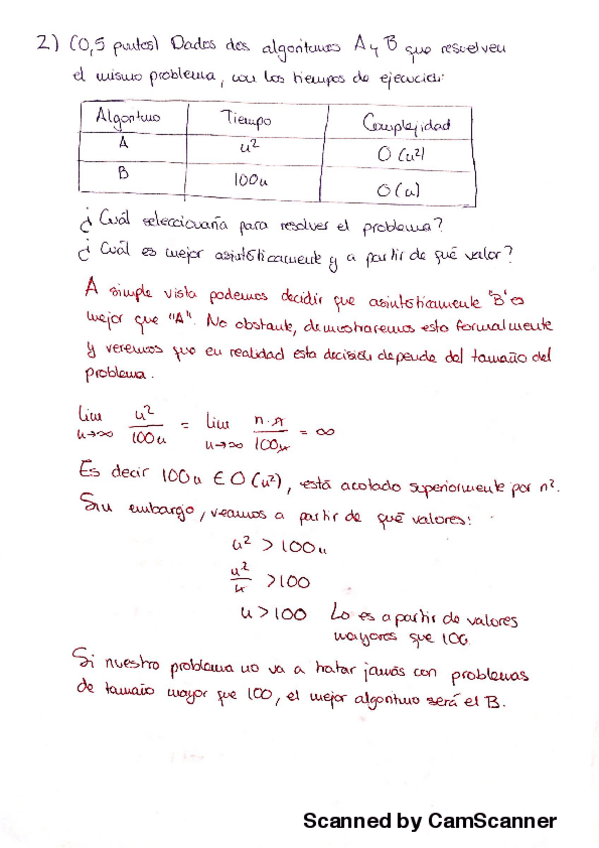 2) (0,5 puntos) Dados dos algoritmos A y B que resuelven
el mismo problema, con los tiempos de ejecución:
Algoritmo Tiempo Complejidad
A n² O(n²)
B 100n O(n)
¿Cuál seleccionaría para resolver el problema?
¿Cuál es mejor asintóticamente y a partir de qué valor?
A simple vista podemos decidir que asintóticamente "B" es
mejor que "A". No obstante, demostraremos esto formalmente
y veremos que en realidad esta decisión depende del tamaño del
problema.
lim n→∞ n²/100n = lim n→∞ n·n/100n = ∞
Es decir 100n ∈ O(n²), está acotado superiormente por n².
Sin embargo, veamos a partir de qué valores:
n² > 100n
n²/n > 100
n > 100 Lo es a partir de valores
mayores que 100.
Si nuestro problema no va a tratar jamás con problemas
de tamaño mayor que 100, el mejor algoritmo será el B.
Scanned by CamScanner